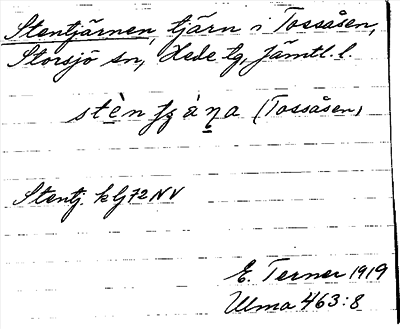 Stentjärnen, tjärn i Tossåsen,
Storsjö sn, Hede tg, Jämtl. l.
(Tossåsen)
Stentj. kbj 72 NV
E. Terner 1919
Ulma 463:8